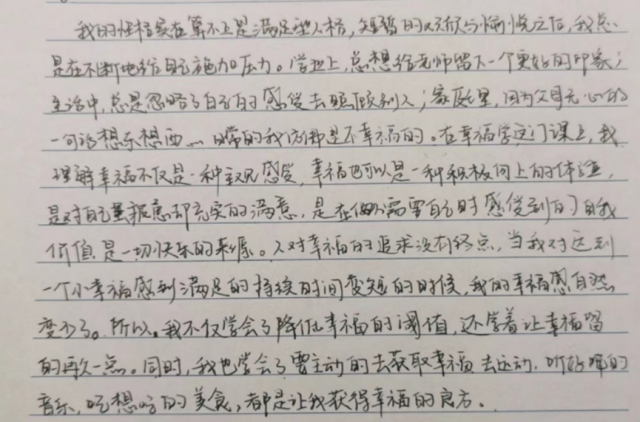 我的性格实在算不上是满足型人格，短暂的欢欣与愉悦之后，我总
是在不断地给自己施加压力。学业上，总想给老师留下一个更好的印象；
生活中，总是忽略了自己的感受去照顾别人；家庭里，因为父母无心的
一句话想东想西…日常的我仿佛是不幸福的。在幸福学这门课上，我
理解幸福不仅是一种主观感受，幸福也可以是一种积极向上的体验，
是对自己疲惫却充实的满意，是在他人需要自己时感受到的自我
价值是一切快乐的来源。人对幸福的追求没有终点，当我对达到
一个小幸福感到满足的持续时间变短的时候，我的幸福感自然
变少了。所以，我不仅学会了降低幸福的阈值，还学着让幸福留
的再久一点。同时，我也学会了要主动的去获取幸福，去运动，听好听的
音乐，吃想吃的美食，都是让我获得幸福的良方。